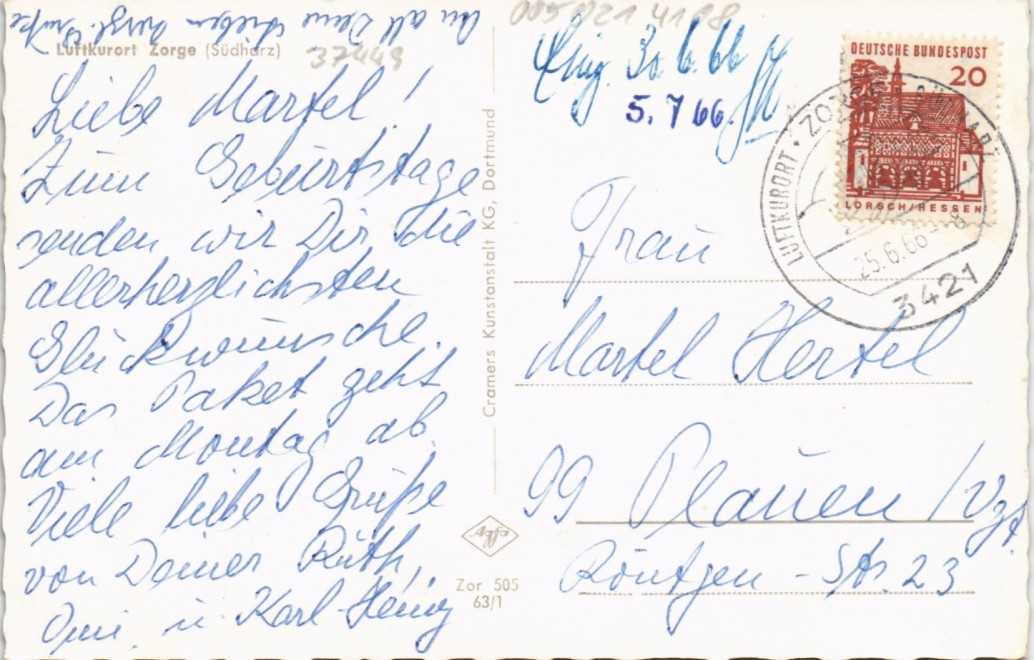 An all Deine Lieben herzl. Grüße
Luftkurort Zorge (Südharz)
37449
Liebe Martel!
Zum Geburtstage
senden wir Dir die
allerherzlichsten
Glückwünsche.
Das Paket geht
am Montag ab.
Viele liebe Grüße
von Deiner Ruth,
Omi u. Karl-Heinz
Cramers Kunstanstalt KG, Dortmund
Agfa
Zor 505
63/1
Eing. 30.6.66
5.7.66
DEUTSCHE BUNDESPOST
20
LORSCH/HESSEN
LUFTKURORT · ZORGE
25.6.66
3421
Frau
Martel Hertel
99 Plauen / Vgt.
Röntgen-Str. 23